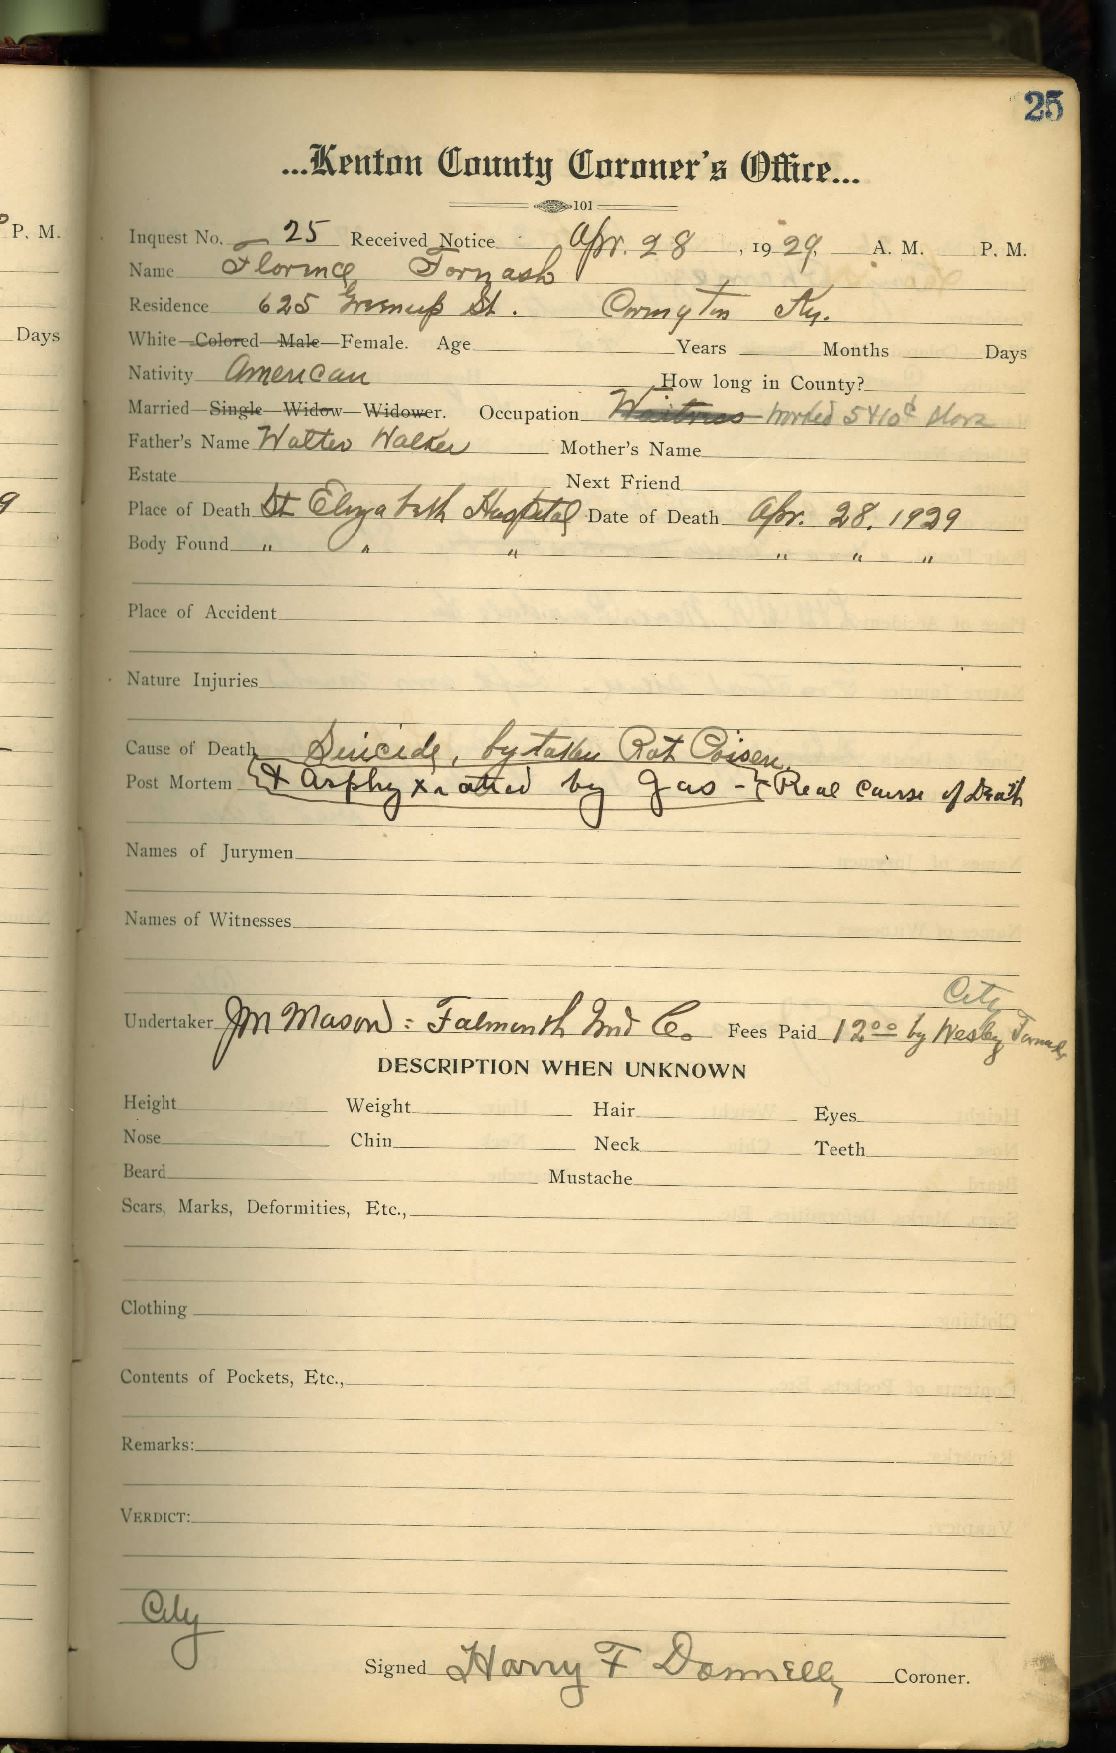 25
...Kenton County Coroner's Office...
101
P. M.
Inquest No. 25 Received Notice Apr. 28, 1929, A. M. P. M.
Name Florence Fornash
Residence 625 Greenup St. Covington Ky.
Days
White—Colored—Male—Female. Age Years Months Days
Nativity American How long in County?
Married—Single—Widow—Widower. Occupation Waitress Worked 5 & 10¢ Store
Father's Name Walter Walker Mother's Name
Estate Next Friend
9
Place of Death St Elizabeth Hospital Date of Death Apr. 28, 1929
Body Found " " " " " "
Place of Accident
Nature Injuries
Cause of Death Suicide, by taken Rat Poisen.
Post Mortem {+ Asphyxxiatied by Gas -} Real Cause of Death
Names of Jurymen
Names of Witnesses
City
Undertaker JM Mason : Falmouth Und Co. Fees Paid 12.00 by Wesley Fornash
DESCRIPTION WHEN UNKNOWN
Height Weight Hair Eyes
Nose Chin Neck Teeth
Beard Mustache
Scars, Marks, Deformities, Etc.,
Clothing
Contents of Pockets, Etc.,
Remarks:
VERDICT:
City
Signed Harry F Donnelly Coroner.